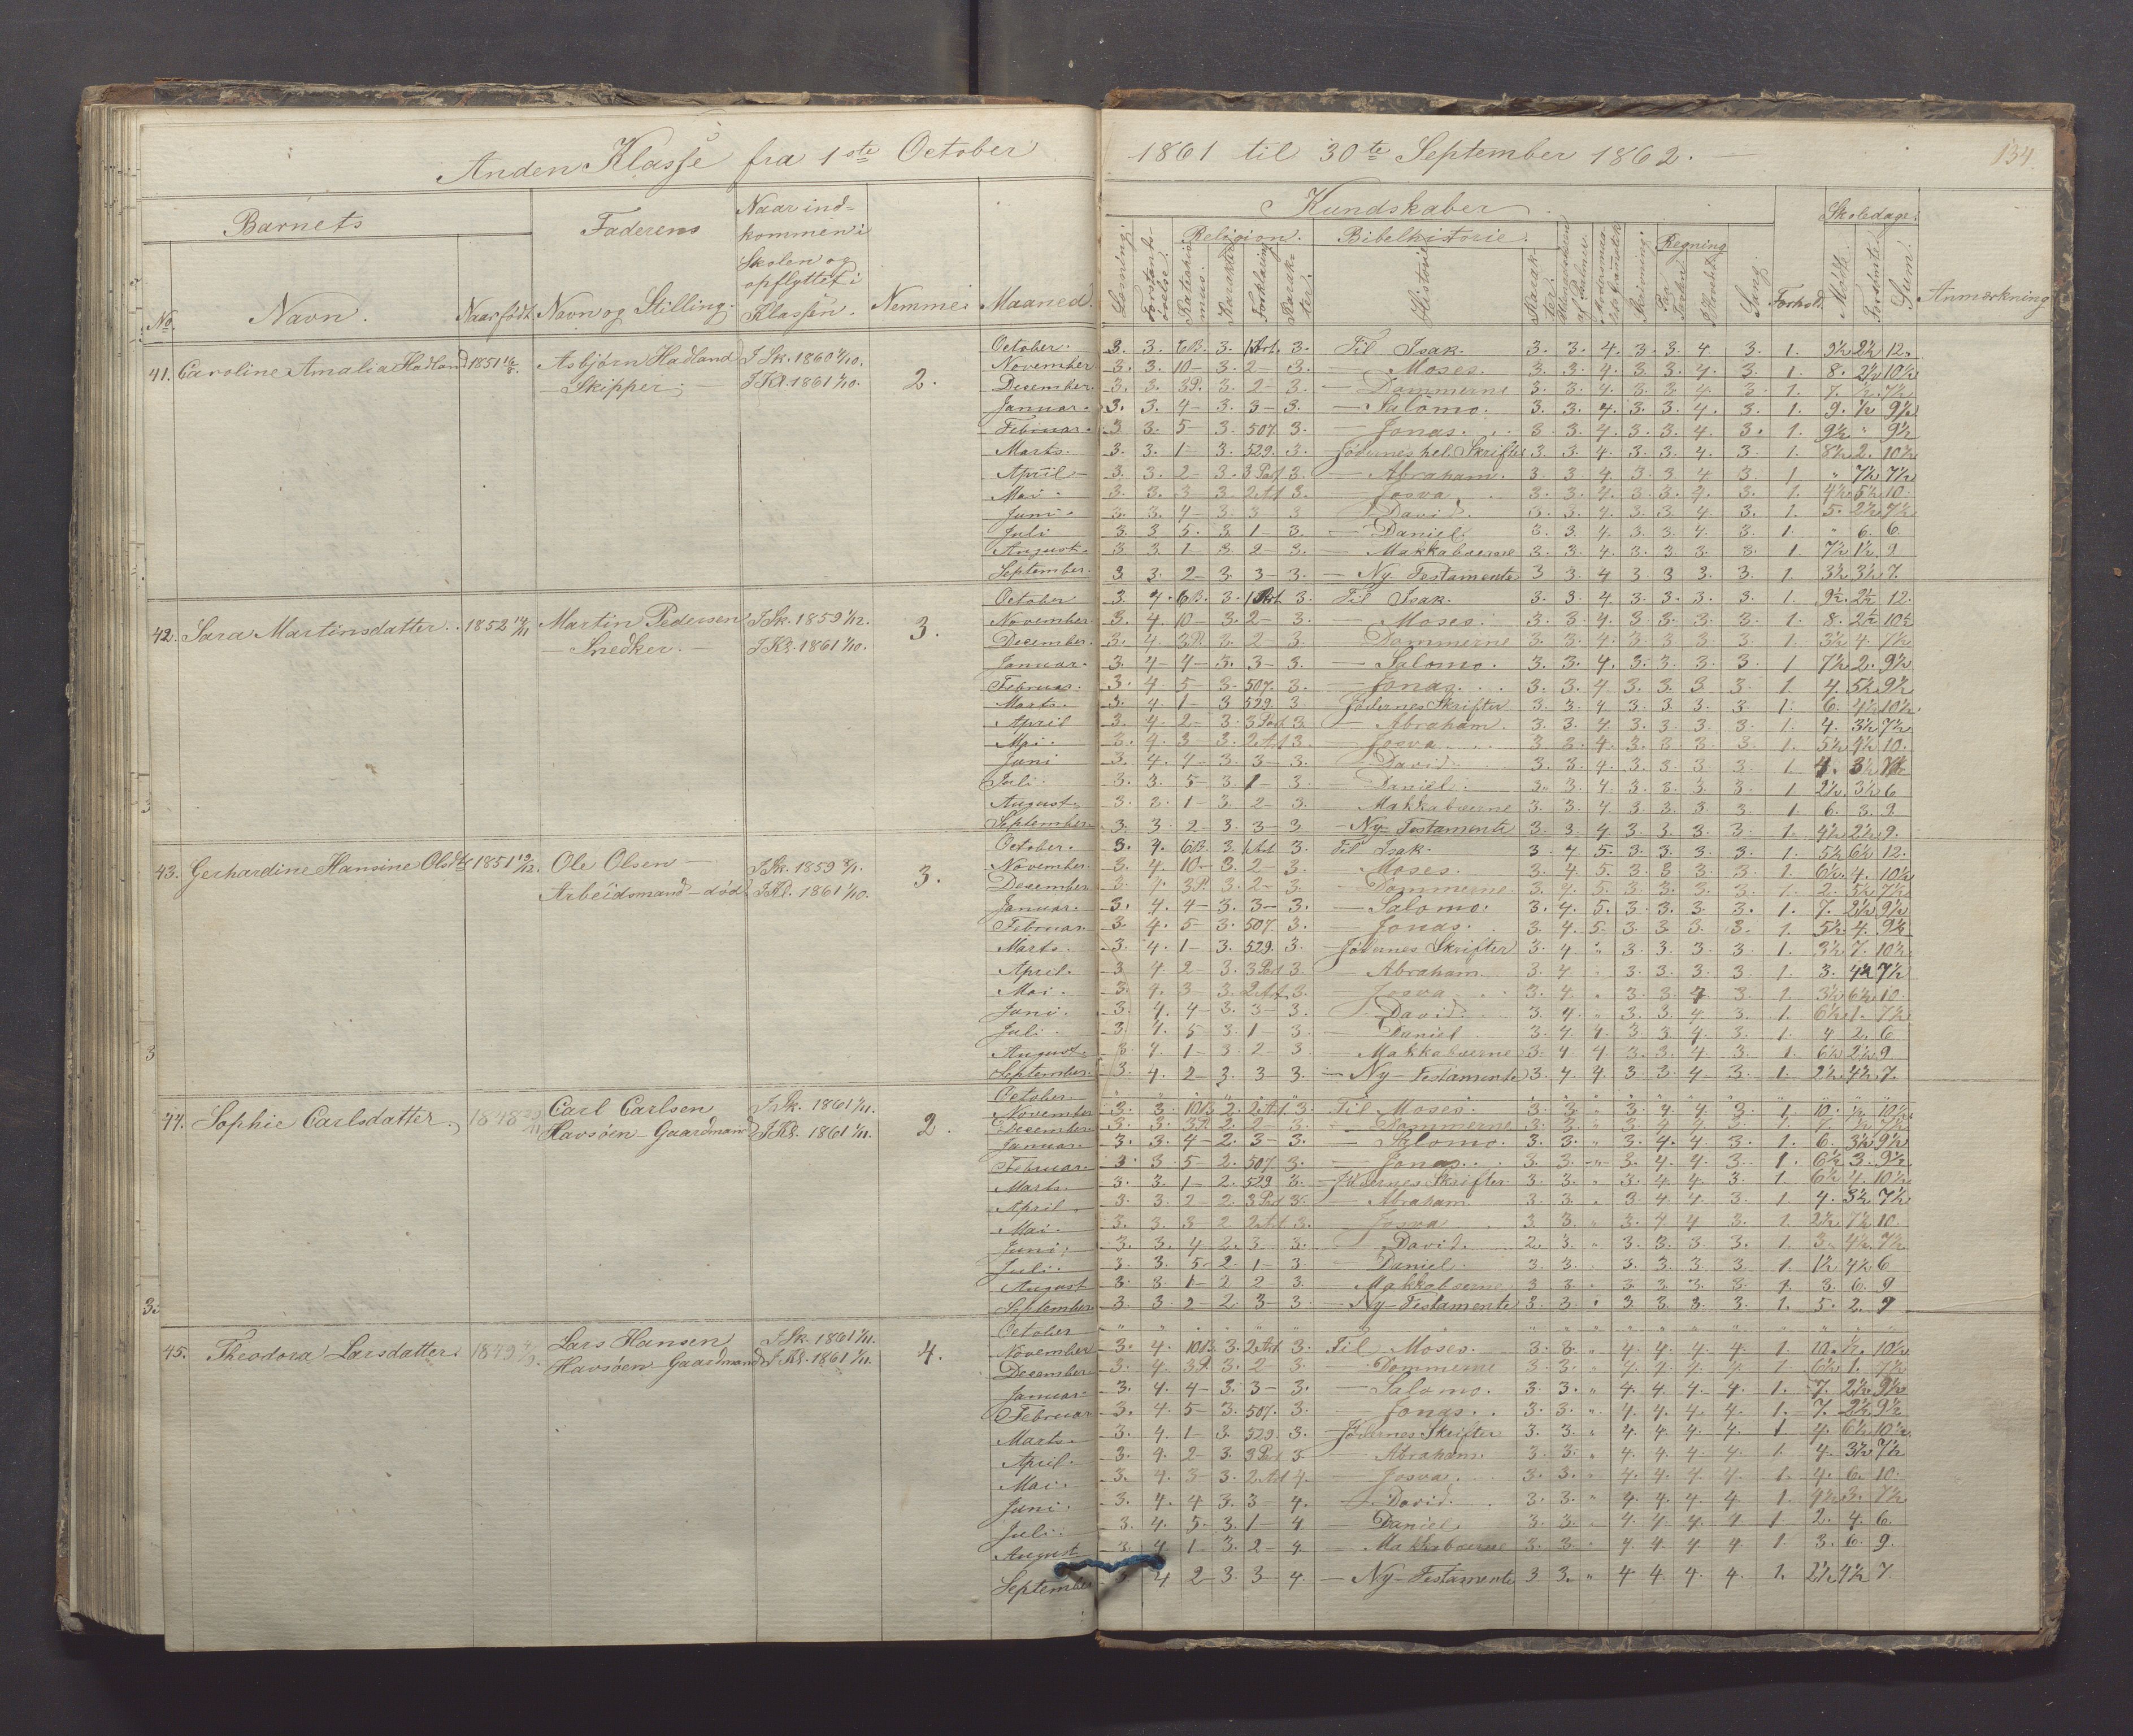 Anden Klasse fra 1ste October 1861 til 30te September 1862.
134.
Barnets
Faderens
Naar ind-
kommen i
Skolen og
opflyttet i
Klassen.
No
Navn.
Naar født
Navn og Stilling.
Nemme.
Maaned.
Kundskaber.
Religion.
Bibelhistorie.
Regning
Skoledage.
Læsning.
Historie
Skrivning.
Sang.
Forhold
Mødte.
Forsømte
Sum.
Anmerkning
41. Caroline Amalia Hadland 1851
Asbjørn Hadland
Skipper.
I Sk. 1860
I Kl. 1861 1/10.
2.
October. 3. 3. 6B. 3. 1Art. 3. Til Isak. 3. 3. 4. 3. 3. 4. 3. 1. 9½ 2½ 12.
November 3. 3. 10 - 3. 2 - 3. - Moses. 3. 3. 4. 3. 3. 4. 3. 1. 8. 2½ 10½
December. 3. 3. 3P. 3. 2 - 3. - Dommerne 3. 3. 4. 3. 3. 4. 3. 1. 7. ½ 7½
Januar. 3. 3. 4 - 3. 3 - 3. - Salomo. 3. 3. 4. 3. 3. 4. 3. 1. 9. ½ 9½
Februar. 3. 3. 5 - 3. 507. 3. - Jonas. 3. 3. 4. 3. 3. 4. 3. 1. 9½ " 9½
Marts. 3. 3. 1 - 3. 529. 3. Jødernes hel. Skrifter 3. 3. 4. 3. 3. 4. 3. 1. 8½ 2. 10½
April 3. 3. 2 - 3. 3 Part 3. - Abraham. 3. 3. 4. 3. 3. 4. 3. 1 " 7½ 7½
Mai. 3. 3. 3 - 3. 2 Art 3. - Josva. 3. 3. 4. 3. 3. 4. 3. 1. 4½ 5½ 10.
Juni. 3. 3. 4 - 3. 3 - 3 - David. 3. 3. 4. 3. 3. 4. 3. 1. 5. 2½ 7½
Juli 3. 3. 5. 3. 1 - 3. - Daniel. 3. 3. 4. 3. 3. 4. 3. 1. " 6. 6.
August. 3. 3. 1 - 3. 2 - 3. - Makkabæerne 3. 3. 4. 3. 3. 3. 3. 1. 7½ 1½ 9.
September. 3. 3. 2 - 3. 3 - 3. - Ny Testamente 3. 3. 4. 3. 3. 3. 3. 1. 3½ 3½ 7.
42. Sara Martinsdatter. 1852
Martin Pedersen
- Snedker. -
I Sk. 1859
I Kl. 1861 1/10.
3.
October 3. 4. 6B. 3. 1Art. 3. Til Isak. 3. 3. 4. 3. 3. 3. 3. 1. 9½. 2½ 12.
November. 3. 4. 10 - 3. 2 - 3. - Moses. 3. 3. 4. 3. 3. 3. 3. 1. 8. 2½ 10½
December. 3. 4. 3P. 3. 2 - 3. - Dommerne 3. 3. 4. 3. 3. 3. 3. 1. 3½ 4. 7½
Januar. 3. 4 - 4 - 3. 3 - 3. - Salomo. 3. 3. 4. 3. 3. 3. 3. 1 7½ 2. 9½
Februar. 3. 4. 5 - 3. 507. 3. - Jonas. 3. 3. 4. 3. 3. 3. 3. 1. 4. 5½ 9½
Marts. 3. 4. 1 - 3 529. 3. Jødernes Skrifter 3. 3. 4. 3. 3. 3. 3 1. 6. 4½ 10½
April 3. 4. 2 - 3. 3 Part 3. - Abraham. 3. 3. 4. 3. 3. 3. 3. 1. 4. 3½ 7½
Mai. 3. 4. 3 - 3. 2 Art 3. - Josva. 3. 3. 4. 3. 3. 3. 3. 1. 5½ 4½ 10.
Juni 3. 4. 4 - 3. 3 - 3. - David. 3. 3. 4. 3. 3. 3. 3. 1 4. 3½ 7½
Juli. 3. 3. 5 - 3. 1 - 3. - Daniel. 3. 3. 4. 3. 3. 3. 3. 1 2½. 3½ 6
August. 3. 3. 1 - 3. 2 - 3. - Makkabæerne 3. 3. 4. 3. 3. 3. 3. 1 6. 3. 9.
September. 3. 3. 2 - 3. 3 - 3 - Ny-Testamente 3. 3. 4. 3. 3. 3. 3. 1. 4½ 2½ 9.
43. Gerhardine Hansine Olsdtr 1851 19/12.
Ole Olsen -
Arbeidsmand - død
I Sk. 1859
I Kl. 1861 1/10.
3.
October. 3. 4. 6B. 3. 1Art. 3. Til Isak. 3. 4. 5. 3. 3. 3. 3. 1. 5½ 6½ 12.
November. 3. 4. 10 - 3. 2 - 3. - Moses. 3. 4. 5. 3. 3. 3. 3. 1. 6½. 4. 10½
December. 3. 4. 3P. 3. 2 - 3. - Dommerne 3. 4. 5. 3. 3. 3. 3. 1. 2. 5½ 7½
Januar. 3. 4. 4 - 3. 3 - 3. - Salomo. 3. 4. 5. 3. 3. 3. 3. 1. 7. 2½ 9½
Februar. 3. 4. 5 - 3. 507 3. - Jonas. 3. 4. 5. 3. 3. 3. 3. 1. 5½. 4. 9½
Marts. 3. 4. 1 - 3. 529. 3. Jødernes Skrifter 3. 4 " 3. 3. 3. 3. 1. 3½ 7. 10½
April. 3. 4. 2 - 3. 3 Part 3. - Abraham. 3. 4 " 3. 3. 3. 3. 1. 3. 4½ 7½
Mai. 3. 4. 3 - 3. 2 Art 3. - Josva. 3. 4. " 3. 3. 4 3. 1. 3½ 6½ 10.
Juni. 3. 4. 4 - 3. 3 - 3. - David. 3. 4. " 3. 3. 4. 3. 1. 6½ 1. 7½
Juli. 3. 4. 5 3. 1 - 3. - Daniel. 3. 4 4. 3. 3. 4. 3. 1. 4 2. 6
August. 3. 4. 1 - 3. 2 - 3. - Makkabæerne 3. 4 4. 3. 3. 4. 3. 1. 6½ 2½ 9
September. 3. 4. 2 - 3. 3 - 3. - Ny-Testamente 3. 4. 4. 3. 3. 4. 3. 1. 2½ 4½ 7.
44. Sophie Carlsdatter, 1848
Carl Carlsen
Havsøen - Gaardmand
I Sk. 1861 1/11.
I Kl. 1861 1/11.
2.
October.
November 3. 3. 10B 2. 2 Art. 3. Til Moses. 3. 3. " 3. 4. 4. 3. 1. 10. ½ 10½
December. 3. 3. 3P. 2. 2 - 3. - Dommerne 3. 3. " 3. 4. 4. 3. 1. 7. ½ 7½
Januar. 3. 3. 4 - 2. 3 - 3. - Salomo. 3. 3. " 3. 4. 4. 3. 1. 6. 3½ 9½
Februar. 3. 3. 5 - 2. 507. 3. - Jonas. 3. 3. " 3. 4. 4. 3. 1. 6½ 3. 9½
Marts. 3. 3. 1 - 2. 529 3. - Jødernes Skrifter. 3. 3. " 3. 4. 4. 3. 1. 6½ 4. 10½
April. 3. 3. 2 - 2. 3 Part 3. - Abraham 3. 3. " 3. 4. 4. 3. 1. 4. 3½ 7½
Mai. 3. 3. 3 2. 2 Art 3. - Josva 3. 3. " 3. 4. 4 3. 1. 2½ 7½ 10.
Juni. 3. 3. 4 2. 3 3. - David. 2. 3. " 3. 3. 3. 3. 1. 3. 4½ 7½
Juli. 3. 3. 5 - 2. 1 - 3. - Daniel. 3. 3. " 3. 3. 3. 3. 1. 1½ 4½ 6
August 3. 3. 1 - 2. 2 - 3. - Makkabæerne 3. 3. " 3. 3. 3. 3. 1. 3. 6. 9
September. 3. 3 2 - 2. 3 - 3. - Ny-Testamente 3. 3. " 3. 3. 3. 3. 1. 5. 2. 9
45. Theodora Larsdatter. 1849
Lars Hansen
Havsøen Gaardmand
I Sk. 1861 1/11.
I Kl. 1861 1/11.
4.
October
November 3. 4. 10B. 3. 2 Art 3. Til Moses. 3. 3. " 4. 4. 4. 4. 1. 10. ½. 10½
December. 3. 4. 3P. 3. 2 3. - Dommerne 3. 3. " 4. 4. 4. 4. 1. 6½ 1. 7½
Januar. 3. 4. 4 - 3. 3 - 3. - Salomo. 3. 3. " 4. 4. 4. 4. 1. 7. 2½ 9½
Februar 3. 4. 5 - 3. 507. 3. - Jonas. 3. 3. " 4. 4. 4. 4. 1. 7. 2½ 9½
Marts. 3. 4. 1 - 3. 529. 3. - Jødernes Skrifter 3. 3. " 4. 4. 4. 4. 1 4. 6½ 10½
April. 3. 4. 2 - 3. 3 Part 3. - Abraham. 3. 3. " 4. 4. 4. 4. 1. 4. 3½ 7½
Mai. 3. 4. 3 - 3. 2 Art 4. - Josva. 3. 3. " 4. 4. 4. 4. 1. 4. 6. 10.
Juni. 3. 4. 4 3. 3 - 4. - David. 3. 3. " 4. 4. 4. 4 1. 4½ 3. 7½
Juli. 3. 4. 5. 3. 1 - 4 - Daniel. 3. 3. " 4. 4. 4. 4 1 2. 4. 6.
August 3. 4 1 - 3. 2 - 4. - Makkabæerne 3. 3. " 4. 4. 4 4 1. 3. 6. 9.
September 3. 4. 2 - 3. 3 - 4. - Ny-Testamente 3 3. " 4 4. 4. 4. 1. 2½ 4½ 7.